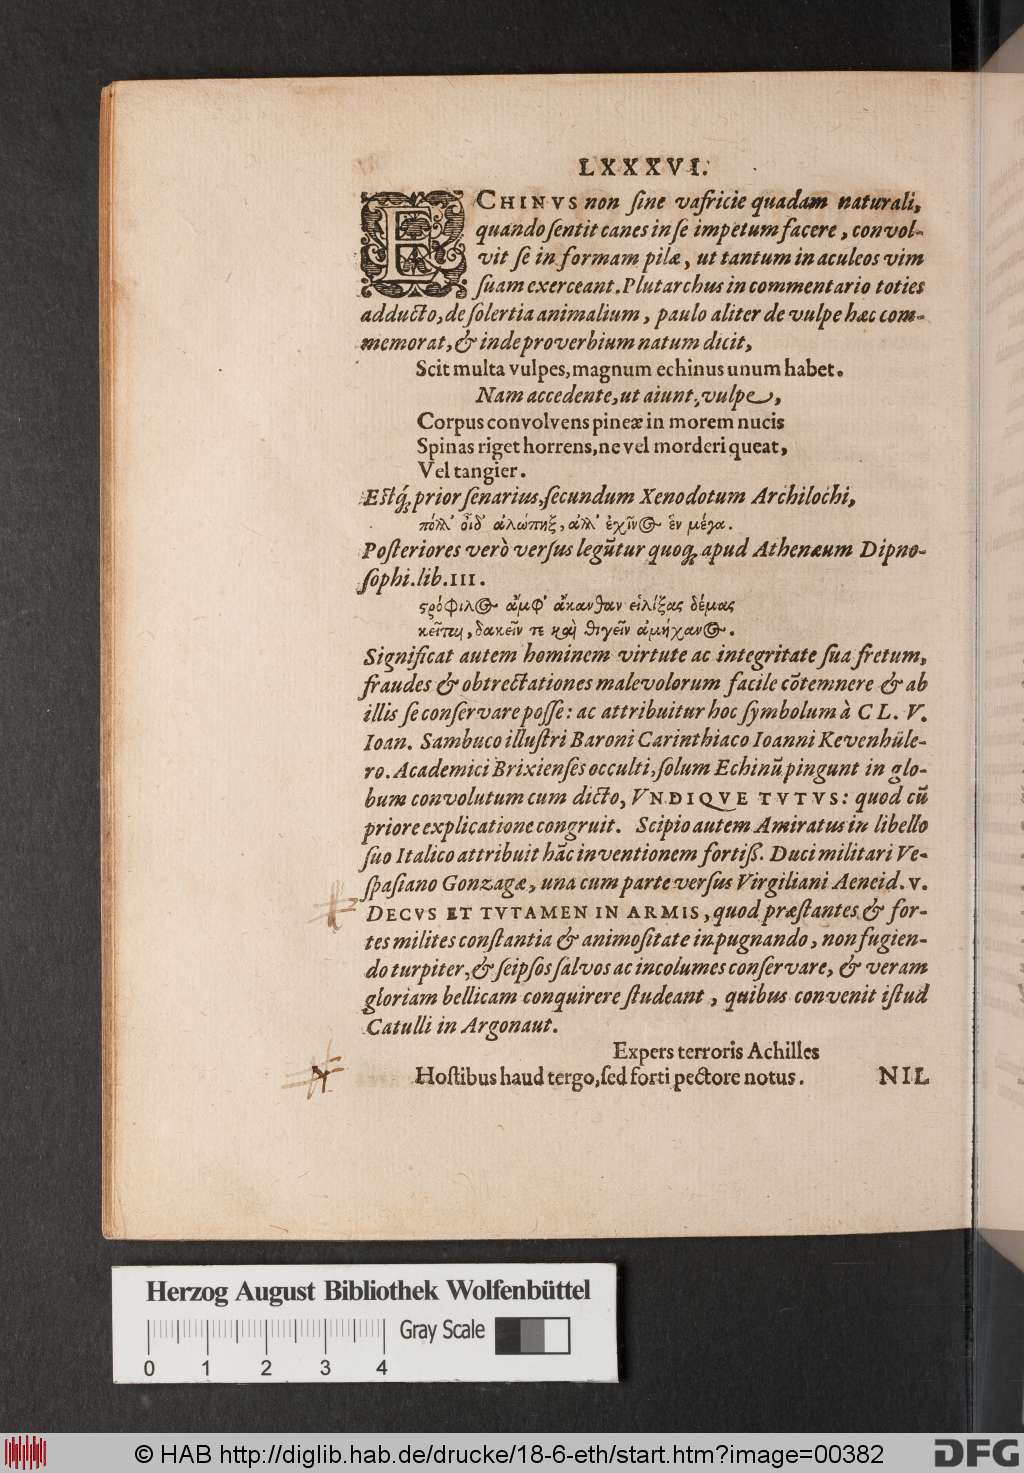 LXXXVI.
ECHINVS non ſine vafricie quadam naturali,
quando ſentit canes in ſe impetum facere, convol-
vit ſe in formam pilæ, ut tantum in aculeos vim
ſuam exerceant. Plutarchus in commentario toties
adducto, de ſolertia animalium, paulo aliter de vulpe hæc com-
memorat, & inde proverbium natum dicit,
Scit multa vulpes, magnum echinus unum habet.
Nam accedente, ut aiunt, vulpe,
Corpus convolvens pineæ in morem nucis
Spinas riget horrens, ne vel morderi queat,
Vel tangier.
Eſtq́; prior ſenarius, ſecundum Xenodotum Archilochi,
πόλλ' οἶδ' ἀλώπηξ, ἀλλ' ἐχῖνος ἓν μέγα.
Poſteriores verò verſus legũtur quoq; apud Athenæum Dipno-
ſophi. lib. III.
ϛρόφιλος ἀμφ' ἄκανθαν εἱλίξας δέμας
κεῖται, δακεῖν τε καὶ θιγεῖν ἀμήχανος.
Significat autem hominem virtute ac integritate ſua fretum,
fraudes & obtrectationes malevolorum facile cõtemnere & ab
illis ſe conſervare poſſe: ac attribuitur hoc ſymbolum à CL. V.
Ioan. Sambuco illuſtri Baroni Carinthiaco Ioanni Kevenhüle-
ro. Academici Brixienſes occulti, ſolum Echinũ pingunt in glo-
bum convolutum cum dicto, VNDIQVE TVTVS: quod cũ
priore explicatione congruit. Scipio autem Amiratus in libello
ſuo Italico attribuit hãc inventionem fortiß. Duci militari Ve-
ſpaſiano Gonzagæ, una cum parte verſus Virgiliani Aeneid. v.
DECVS ET TVTAMEN IN ARMIS, quod præſtantes & for-
tes milites conſtantia & animoſitate in pugnando, non fugien-
do turpiter, & ſeipſos ſalvos ac incolumes conſervare, & veram
gloriam bellicam conquirere ſtudeant, quibus convenit iſtud
Catulli in Argonaut.
Expers terroris Achilles
Hoſtibus haud tergo, ſed forti pectore notus.
NIL
Herzog August Bibliothek Wolfenbüttel
Gray Scale
0 1 2 3 4
© HAB http://diglib.hab.de/drucke/18-6-eth/start.htm?image=00382
DFG